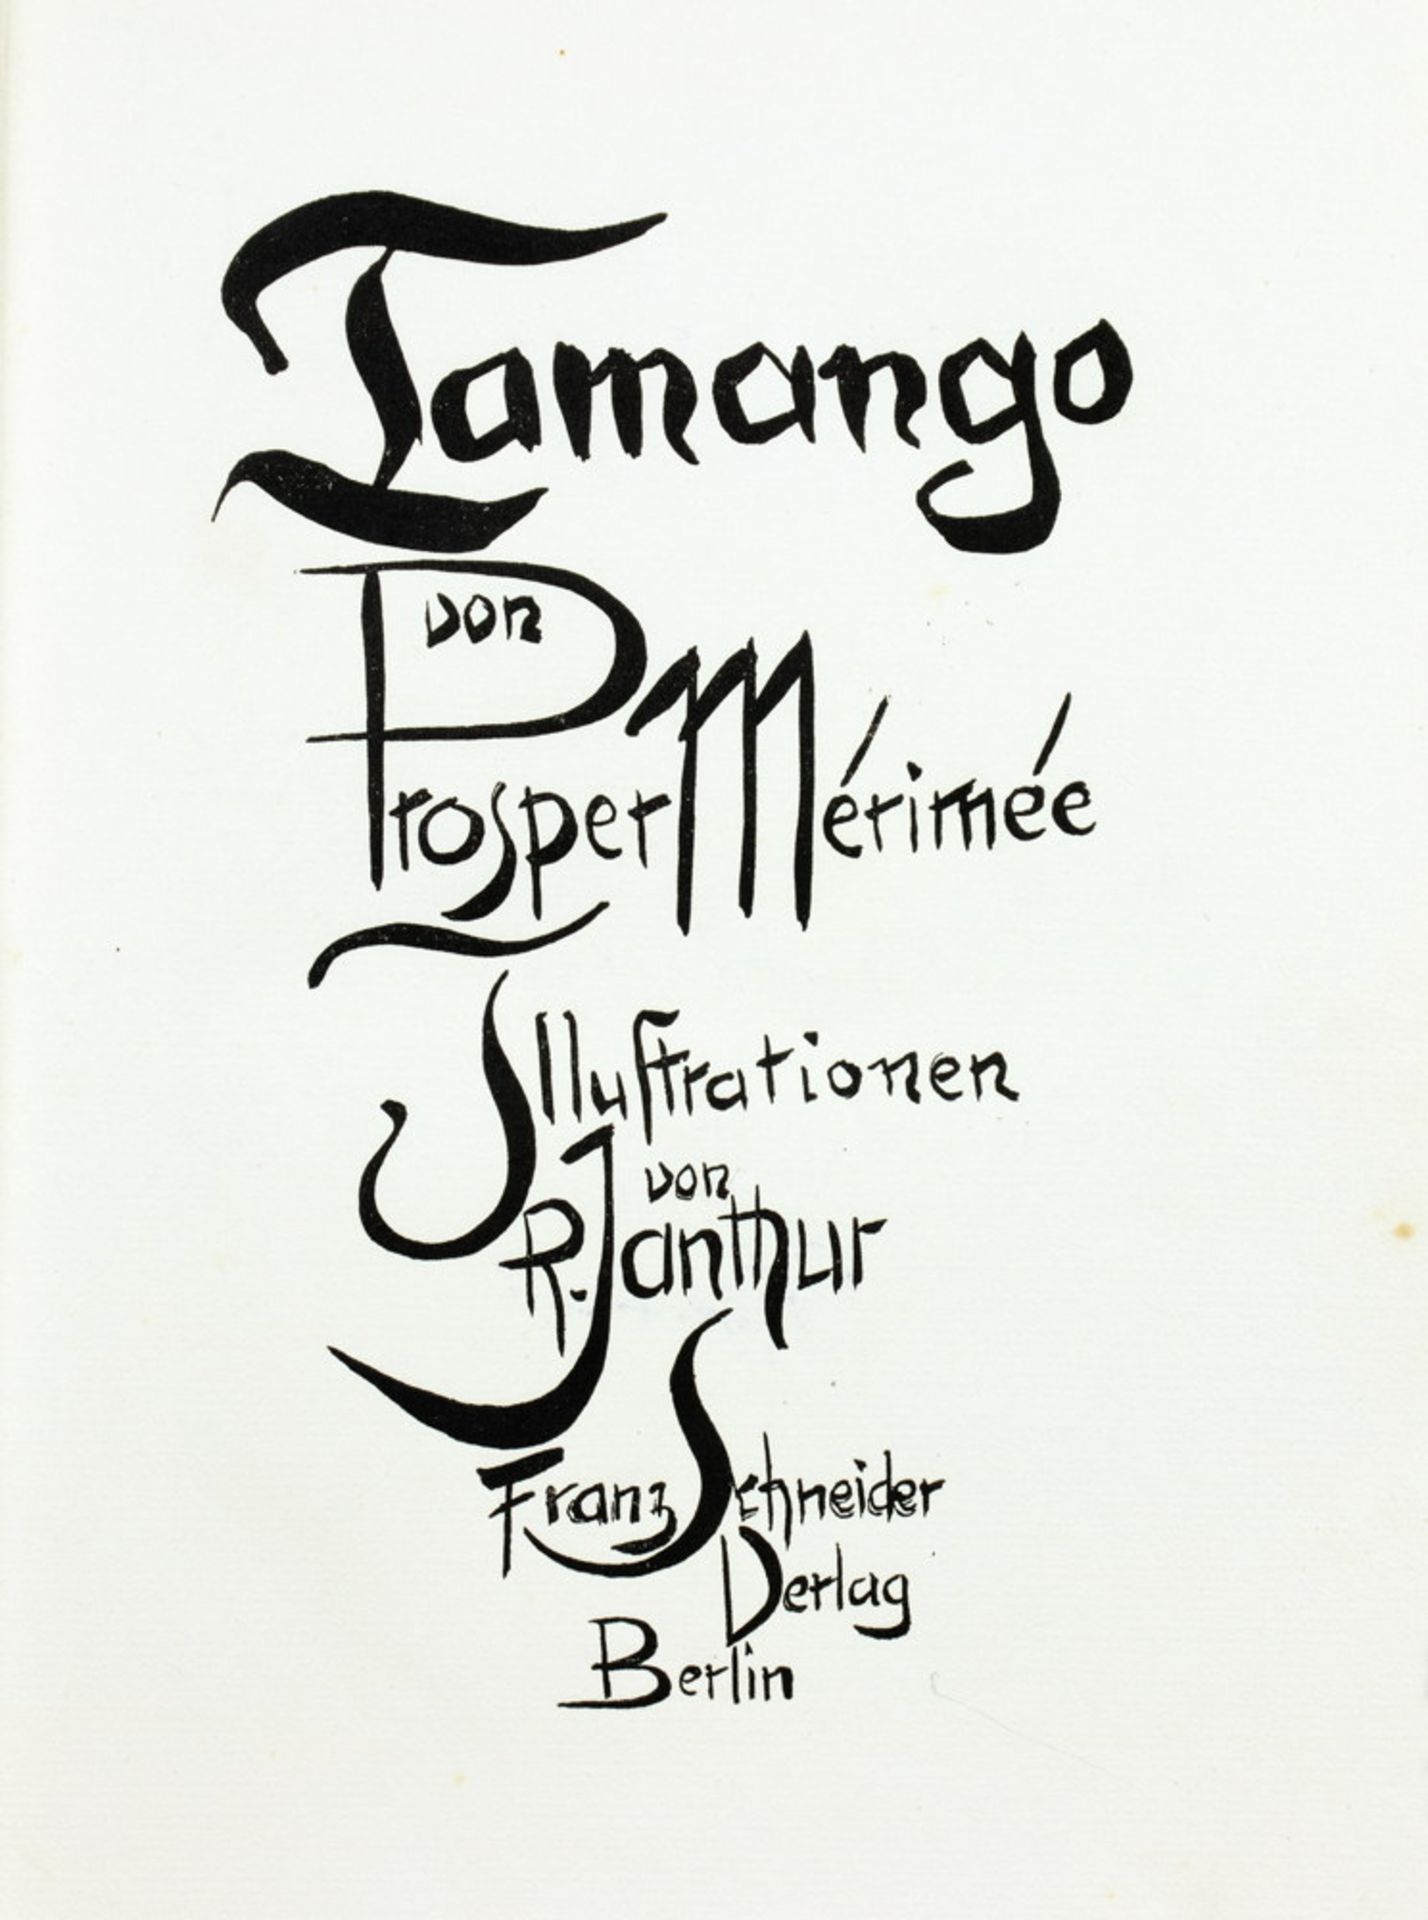 Tamango
von
Prosper Mérimée
Illuſtrationen
von
R. Janthur
Franz Schneider
Verlag
Berlin